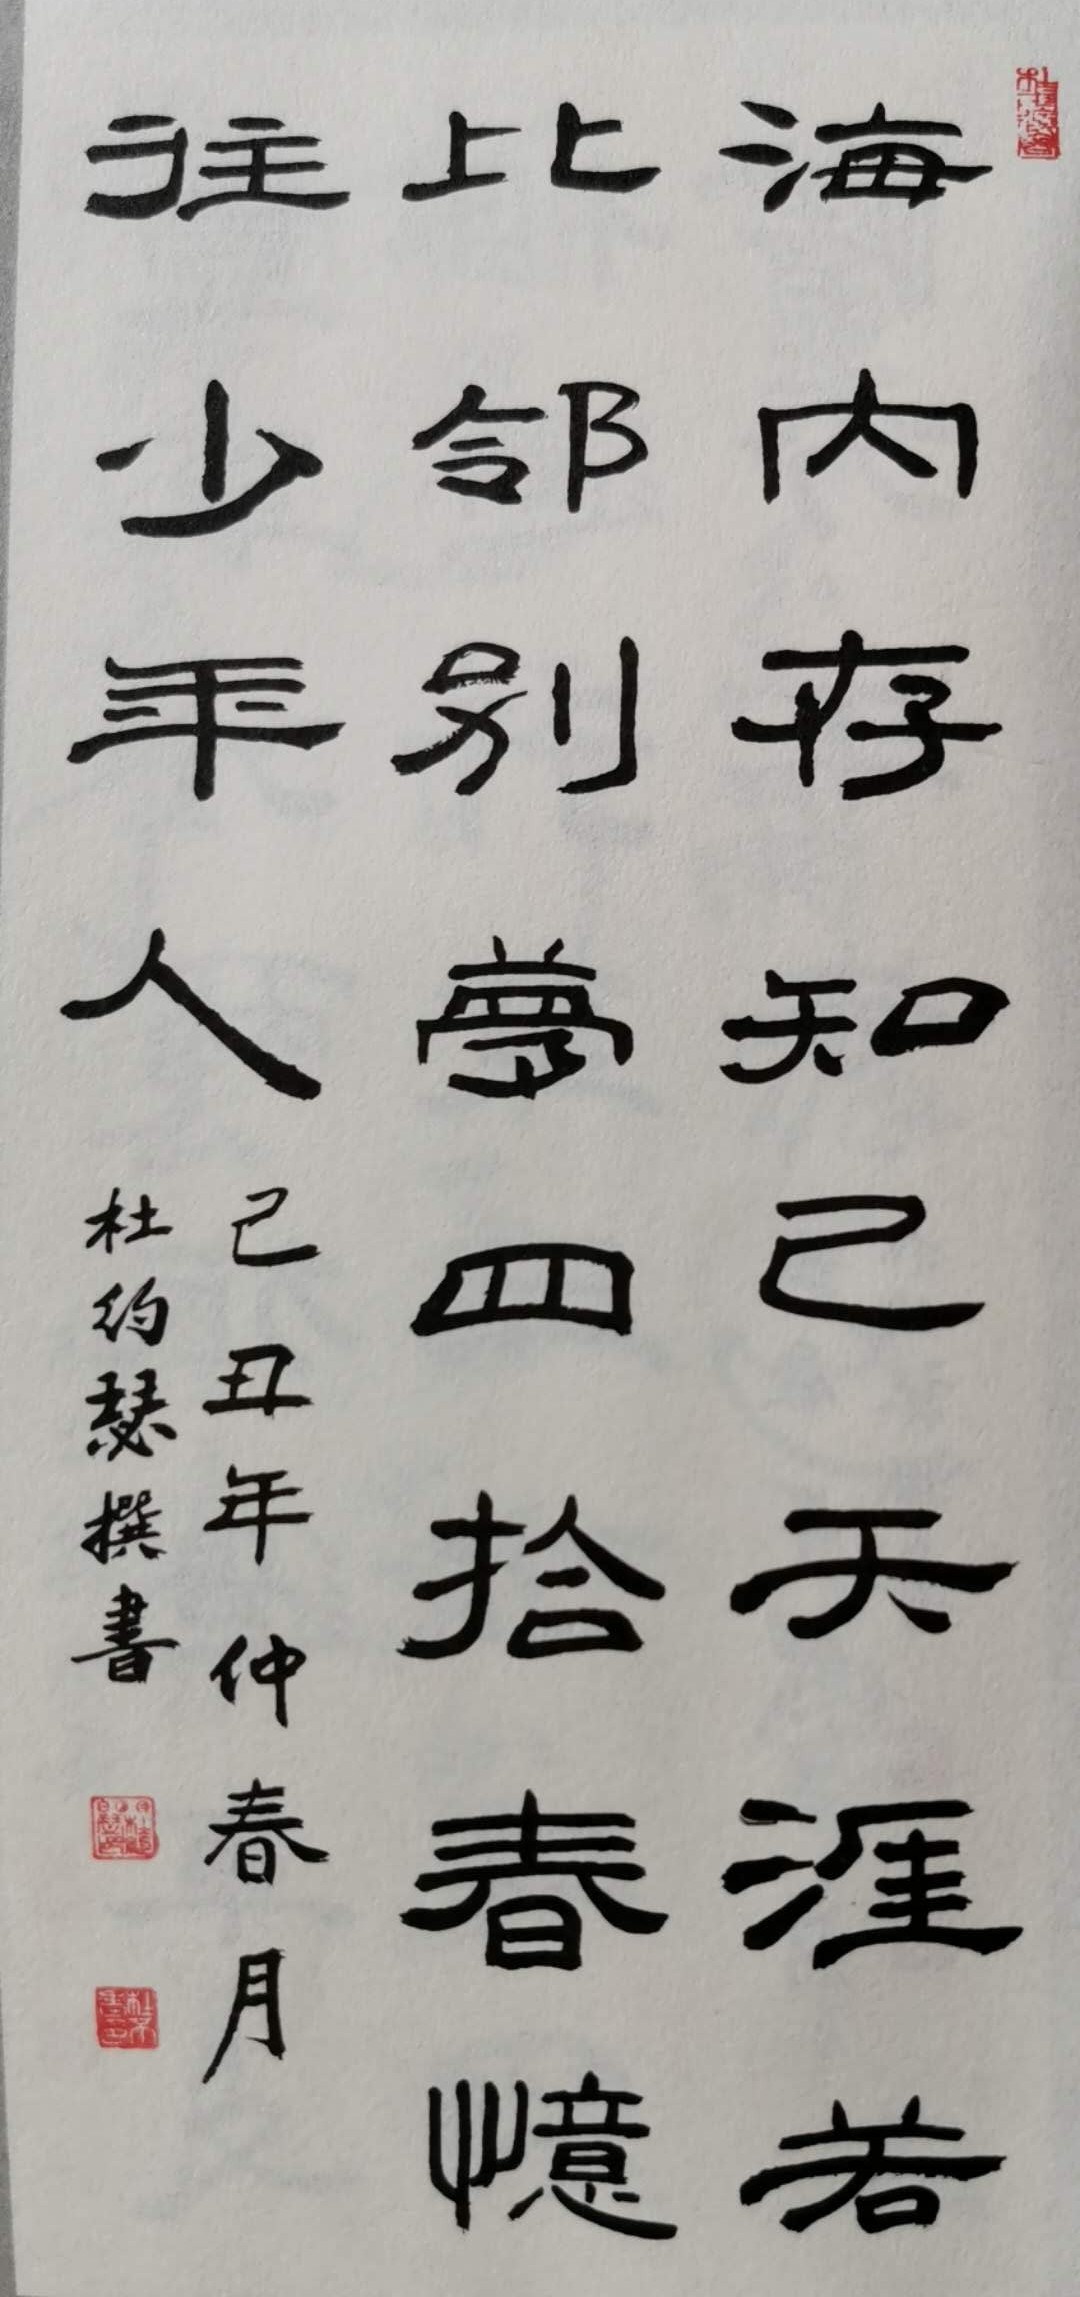 海内存知己天涯若
比邻别夢四拾春憶
往少年人
己丑年仲春月
杜约瑟撰書